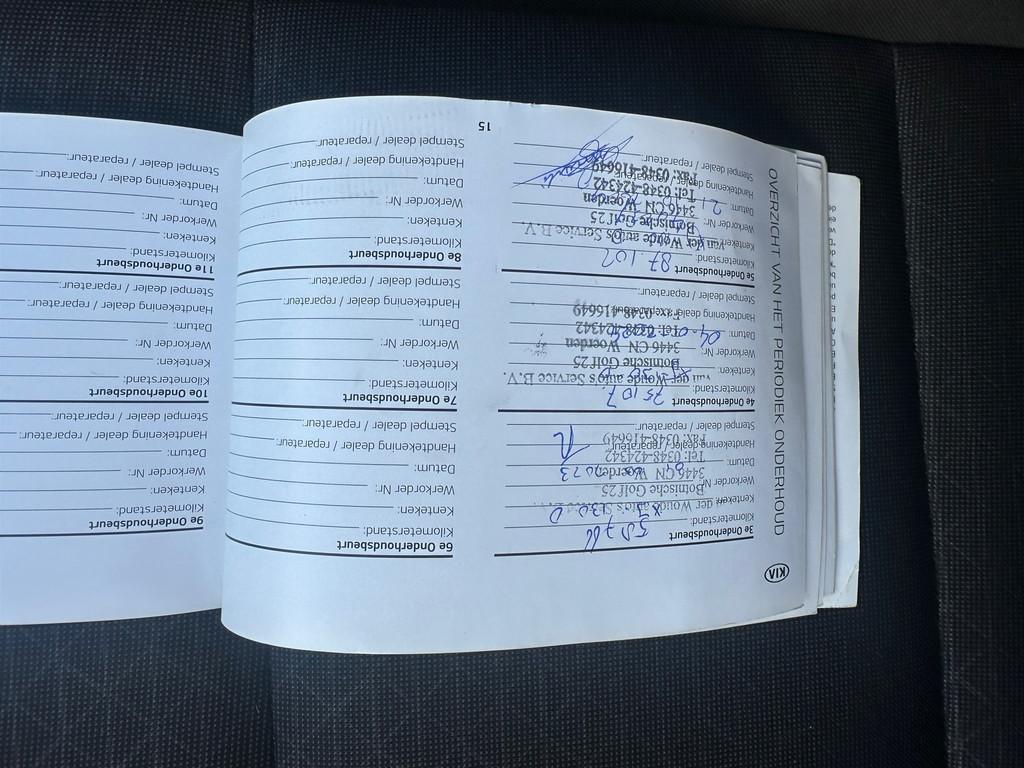 KIA
OVERZICHT VAN HET PERIODIEK ONDERHOUD
3e Onderhoudsbeurt
Kilometerstand:
Kenteken:
Werkorder Nr:
Datum:
Handtekening dealer / reparateur:
Stempel dealer / reparateur:
van der Woude auto's Service B.V.
Botnische Golf 25
3446 CN Woerden
Tel: 0348-424342
Fax: 0348-416649
4e Onderhoudsbeurt
Kilometerstand: 75107
Kenteken:
Werkorder Nr:
Datum:
Handtekening dealer / reparateur:
Stempel dealer / reparateur:
van der Woude auto's Service B.V.
Botnische Golf 25
3446 CN Woerden
Tel: 0348-424342
Fax: 0348-416649
5e Onderhoudsbeurt
Kilometerstand: 87.107
Kenteken:
Werkorder Nr:
Datum:
Handtekening dealer / reparateur:
Stempel dealer / reparateur:
van der Woude auto's Service B.V.
Botnische Golf 25
3446 CN Woerden
Tel: 0348-424342
Fax: 0348-416649
6e Onderhoudsbeurt
Kilometerstand:
Kenteken:
Werkorder Nr:
Datum:
Handtekening dealer / reparateur:
Stempel dealer / reparateur:
7e Onderhoudsbeurt
Kilometerstand:
Kenteken:
Werkorder Nr:
Datum:
Handtekening dealer / reparateur:
Stempel dealer / reparateur:
8e Onderhoudsbeurt
Kilometerstand:
Kenteken:
Werkorder Nr:
Datum:
Handtekening dealer / reparateur:
Stempel dealer / reparateur:
15
9e Onderhoudsbeurt
Kilometerstand:
Kenteken:
Werkorder Nr:
Datum:
Handtekening dealer / reparateur:
Stempel dealer / reparateur:
10e Onderhoudsbeurt
Kilometerstand:
Kenteken:
Werkorder Nr:
Datum:
Handtekening dealer / reparateur:
Stempel dealer / reparateur:
11e Onderhoudsbeurt
Kilometerstand:
Kenteken:
Werkorder Nr:
Datum:
Handtekening dealer / reparateur:
Stempel dealer / reparateur: